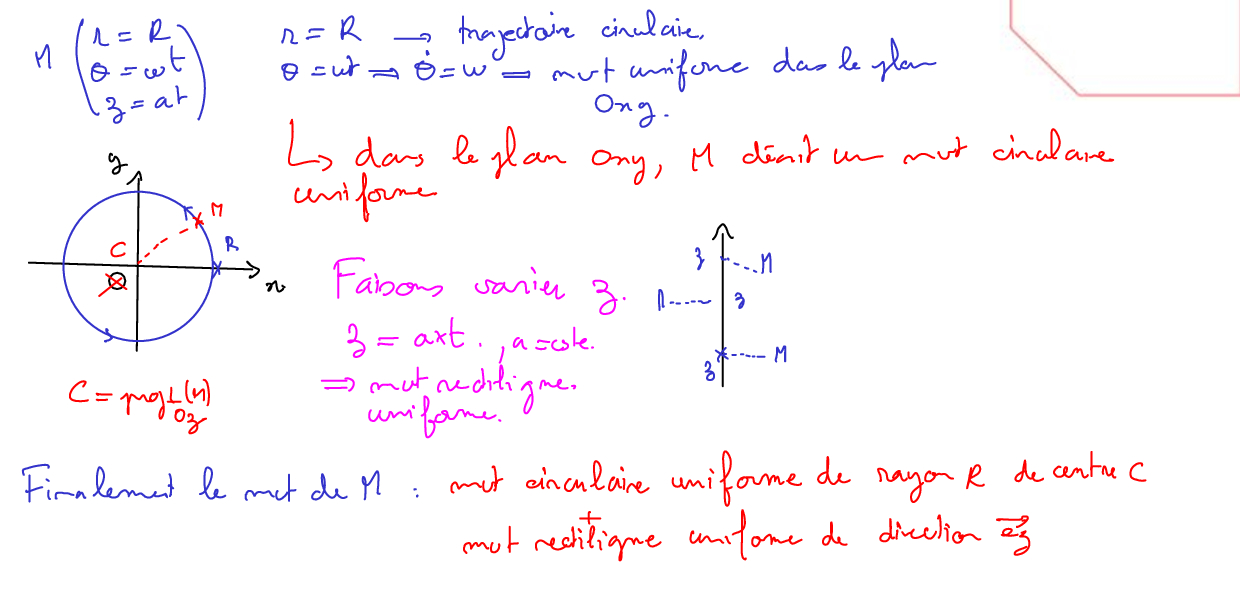 M ( r = R
θ = ωt
z = at )
r = R → trajectoire circulaire,
θ = ωt ⇒ θ̇ = ω = mvt uniforme dans le plan
Oxy.
↳ dans le plan Oxy, M décrit un mvt circulaire
uniforme
y
M
C
R
O
x
C = proj⊥(M)
Oz
Faisons varier z.
z = a×t. , a = cste.
⇒ mvt rectiligne.
uniforme.
z
M
M
z
z
M
Finalement le mvt de M : mvt circulaire uniforme de rayon R de centre C
+
mvt rectiligne uniforme de direction e⃗z